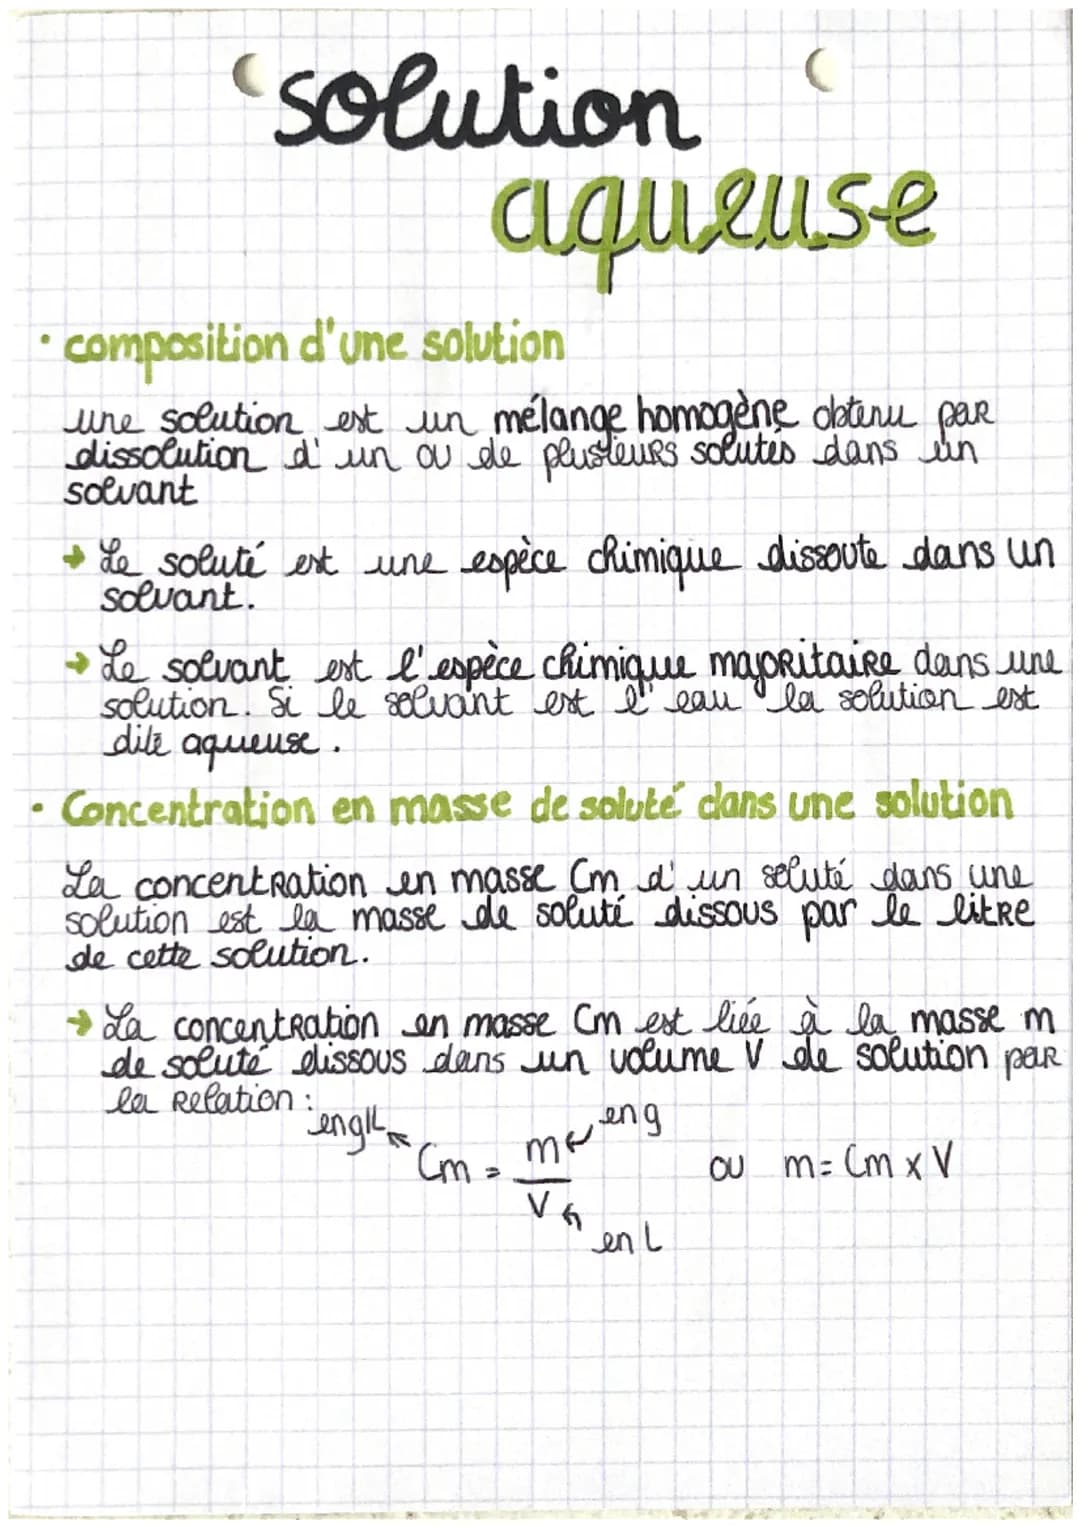 solution
aqueuse
• composition d'une solution
une solution est un mélange homogène obtenu par
dissolution d'un ou de plusieurs solutés dans un
solvant
→ Le soluté est une espèce chimique dissoute dans un
solvant.
→ Le solvant est l'espèce chimique majoritaire dans une
solution. Si le solvant est l'eau la solution est
dite aqueuse.
• Concentration en masse de soluté dans une solution
La concentration en masse Cm d'un soluté dans une
solution est la masse de soluté dissous par le litre
de cette solution.
→ La concentration en masse Cm est liée à la masse m
de soluté dissous dans un volume V de solution par
la relation :
en g/L Cm = m/V en g en L ou m = Cm x V